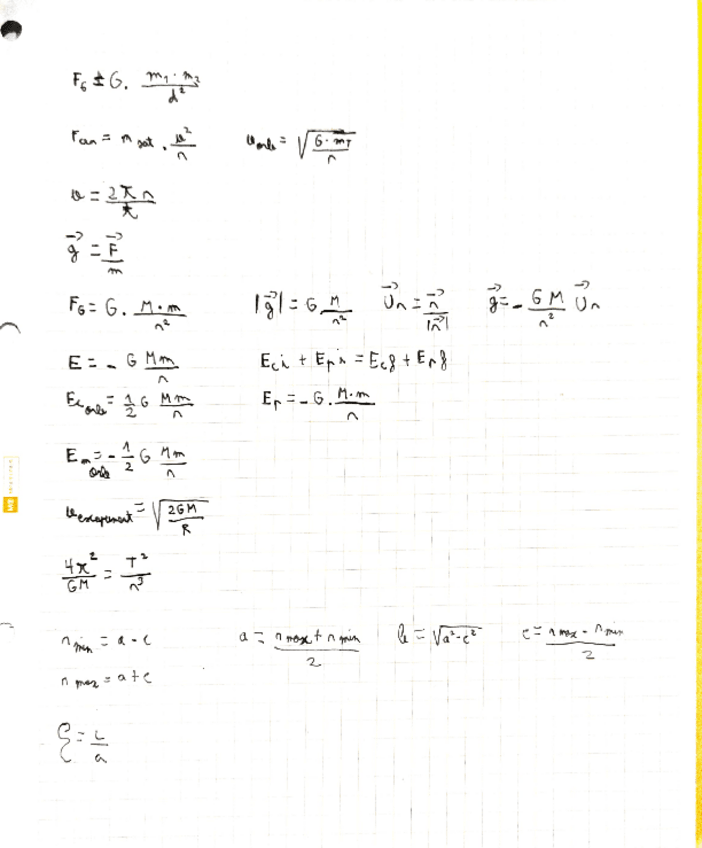 F_G = G · (m₁ · m₂)/d²
F_cn = m_sat · v²/r    v_orb = √(G · m_T/r)
v = 2πr/t
g⃗ = F⃗/m
F_G = G · (M · m)/r²    |g⃗| = G M/r²    U⃗r = r⃗/|r⃗|    g⃗ = - (G M/r²) U⃗r
E = - G Mm/r    Eci + Epi = Ecf + Epf
Ec_orb = 1/2 G Mm/r    Ep = - G · (M · m)/r
Em_orb = - 1/2 G Mm/r
= √(2GM/R)
4π²/GM = T²/r³
r min = a - c    a = (r max + r min)/2    b = √(a² - c²)    c = (r max - r min)/2
r max = a + c
ξ = c/a